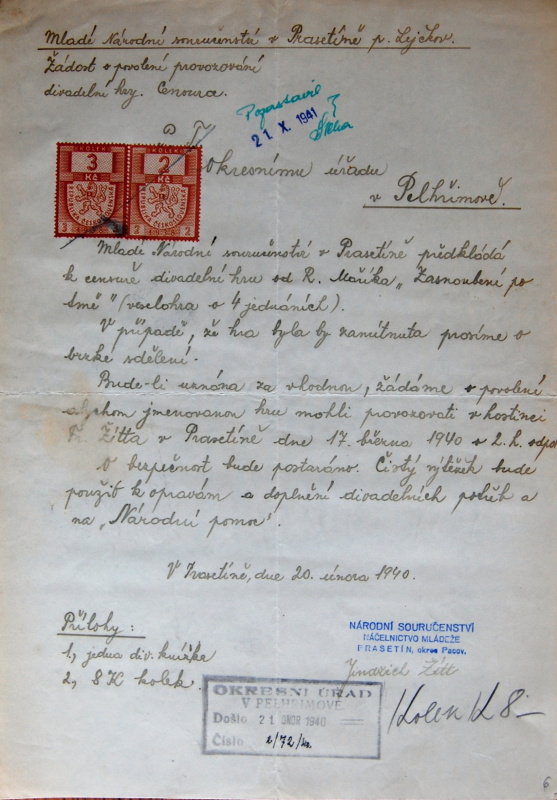 Mladé Národní souručenství v Prasetíně p. Lejčkov.
Žádost o povolení provozování
divadelní hry. Censura.
21. X. 1941
P. T.
KOLEK KOLEK
3 2
Kč Kč
REPUBLIKA ČESKOSLOVENSKÁ REPUBLIKA ČESKOSLOVENSKÁ
3 1938 3 2 1938 2
Okresnímu úřadu
v Pelhřimově.
Mladé Národní souručenství v Prasetíně předkládá
k censuře divadelní hru od R. Maříka „Zasnoubení po
tmě" (veselohra o 4 jednáních).
V případě, že hra byla by zamítnuta prosíme o
brzké sdělení.
Bude-li uznána za vhodnou, žádáme o povolení
abychom jmenovanou hru mohli provozovati v hostinci
Fr. Žitta v Prasetíně dne 17. března 1940 o 2. h. odpo
O bezpečnost bude postaráno. Čistý výtěžek bude
použit k opravám a doplnění divadelních potřeb a
na „Národní pomoc".
V Prasetíně, dne 20. února 1940.
Přílohy:
1, jedna div. knížka
2, 8 K kolek.
NÁRODNÍ SOURUČENSTVÍ
NÁČELNICTVO MLÁDEŽE
PRASETÍN, okres Pacov.
Jindřich Žitt
OKRESNÍ ÚŘAD
V PELHŘIMOVĚ
Došlo 21 ÚNOR 1940
Číslo
Kolek K 8-
6